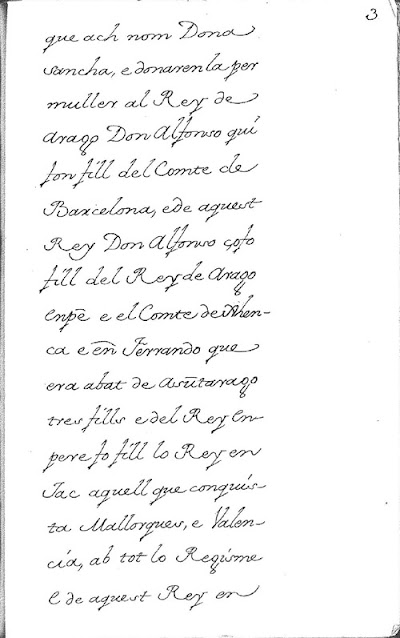 3
que ach nom Dona
sancha, e donaren la per
muller al Rey de
arago Don Alfonso qui
fon fill del Comte de
Barcelona, e de aquest
Rey Don Alfonso çofo
fill del Rey de Arago
enpē e el Comte de
ca e en̄ Ferrando que
era abat de
tres fills e del Rey En
pere fo fill lo Rey en
Jac aquell que conquis-
ta Mallorques, e Valen-
cia, ab tot lo Regisme
E de aquest Rey en